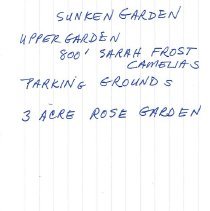 SUNKEN GARDEN
UPPER GARDEN
800' SARAH FROST
CAMELIAS
PARKING GROUNDS
3 ACRE ROSE GARDEN